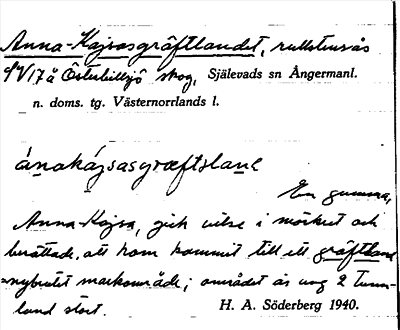 Anna-Kajsasgräftlandet, rullstensås
i Österbillsjö skog, Själevads sn Ångermanl.
n. doms. tg. Västernorrlands l.
ánakájsasgræftslane
En gumma,
Anna-Kajsa, gick vilse i mörkret och
berättade, att hon kommit till ett gräftland
=nybrutet markområde; området är ung 2 tunn-
land stort. H. A. Söderberg 1940.